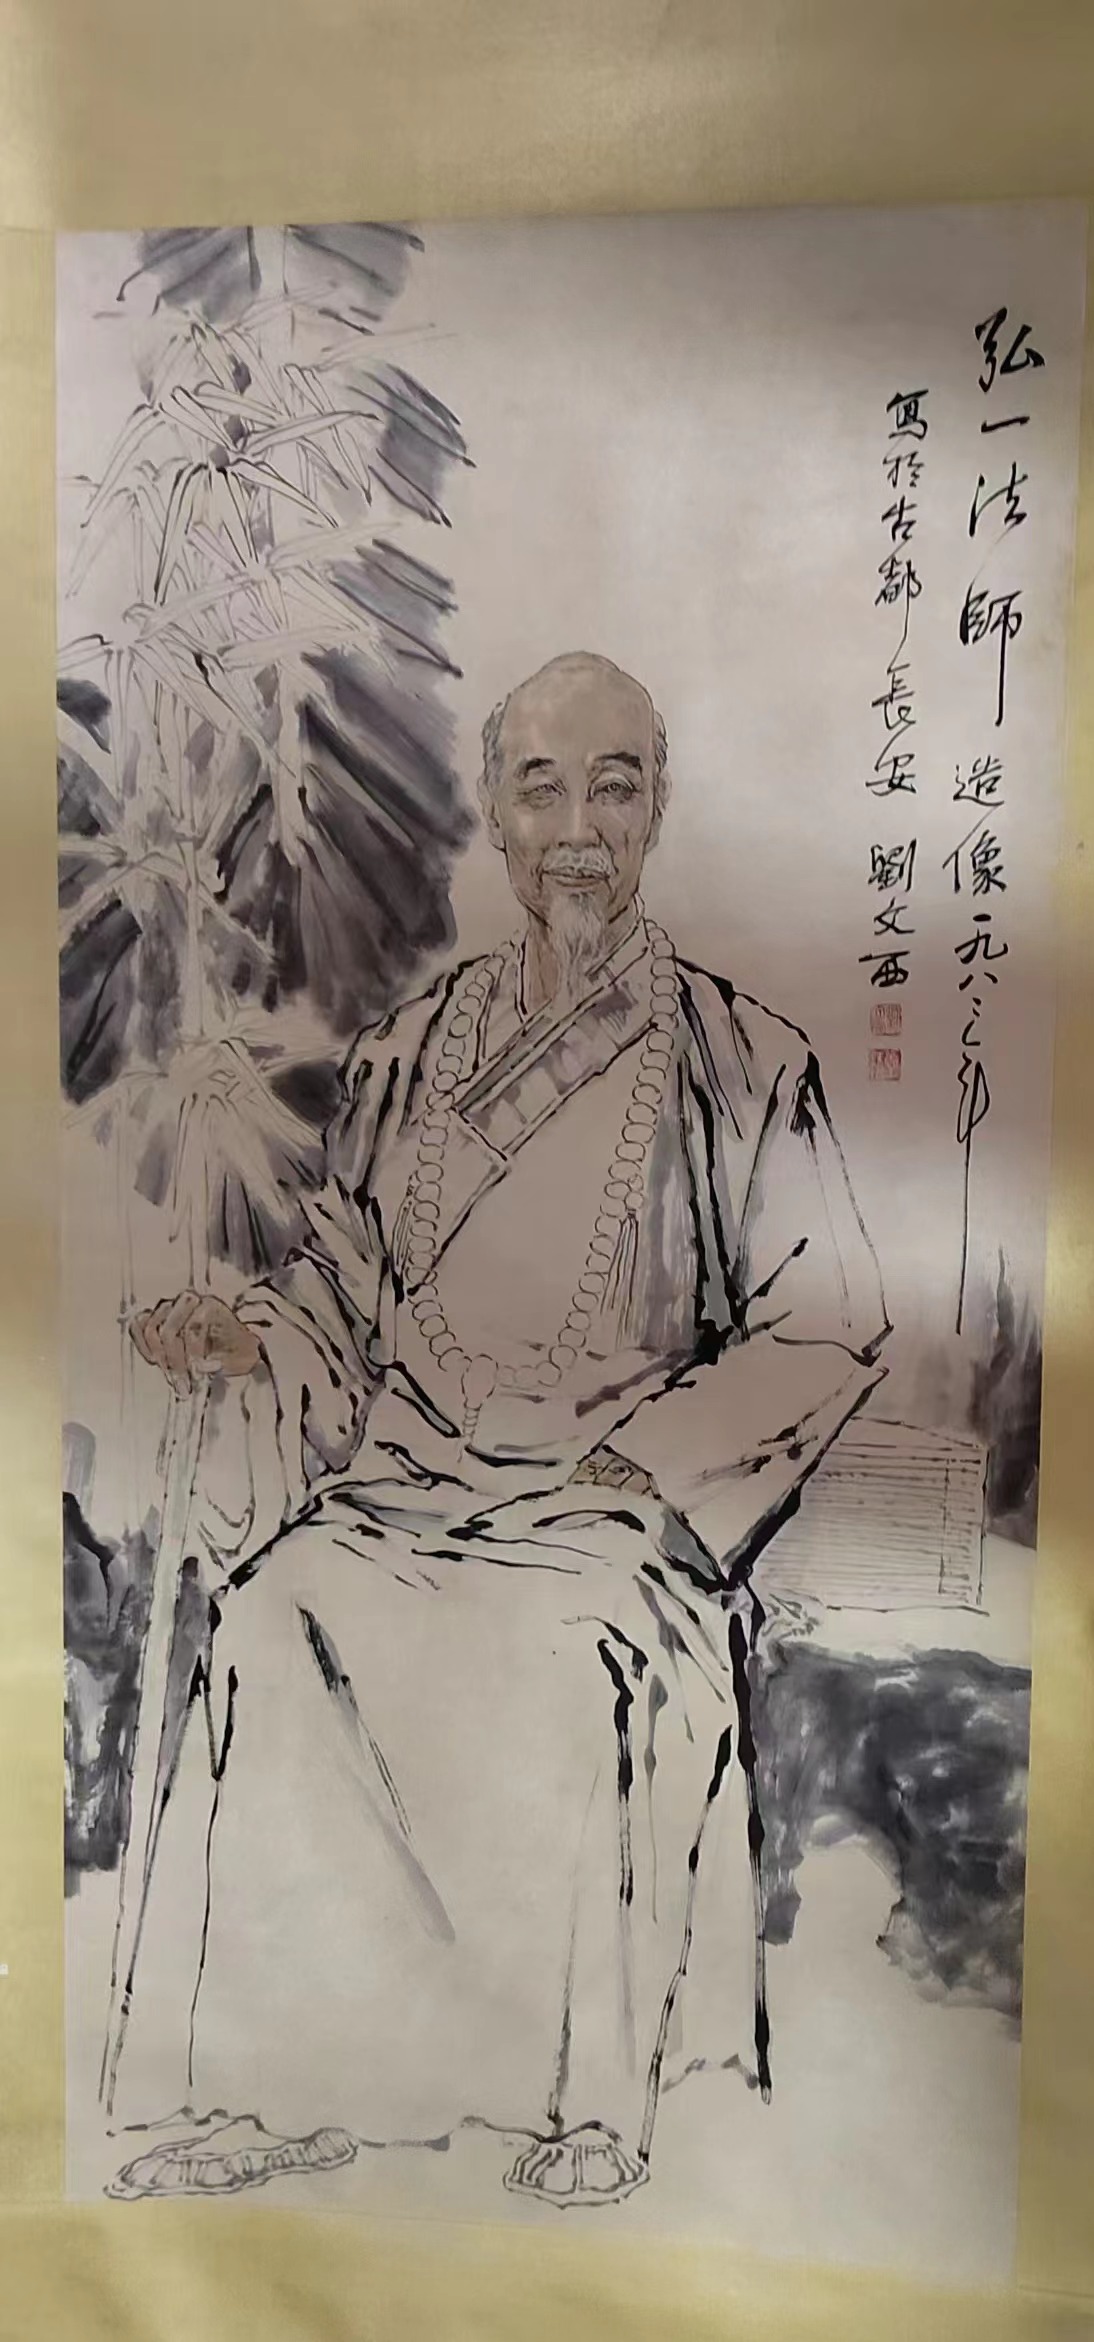 弘一法師造像一九八三年
寫於古都長安劉文西